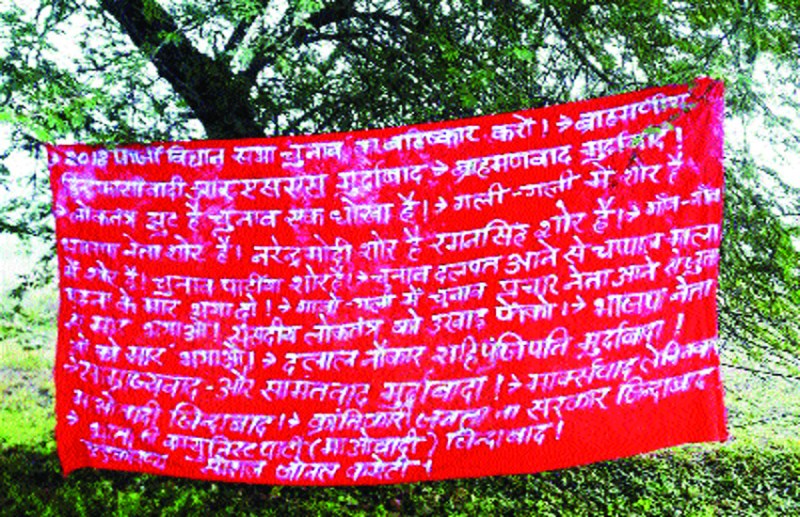 → 2018 पार्लो विधान सभा चुनाव का बहिष्कार करो।→ ब्राह्मणीय
हिन्दु फासीवादी आर एसएस मुर्दाबाद → ब्राहमणवाद मुर्दाबाद!
→ लोकतंत्र झुट है चुनाव एक धोखा है।→ गली-गली में शोर है
भाजपा नेता शोर है। नरेन्द्र मोदी शोर है रमनसिंह शोर है।→ गाँव-गाँव
में शोर है। चुनाव पार्टीया शोर है।→ चुनाव आने से चप्पल माला
के मार भगा दो!→ गली-गली में चुनाव प्रचार नेता आने से जुता
से मार भगाओ। संसदीय लोकतंत्र को उखाड़ फेंको।→ भाजपा नेता
ओं को मार भगाओ।→ दलाल नौकर शाही पुंजिपति मुर्दाबाद!
→ साम्राज्यवाद-और सामंतवाद मुर्दाबाद!→ मार्क्सवाद लेनिनवाद
माओवादी जिन्दाबाद!→ क्रांतिकारी जनता ना सरकार जिन्दाबाद
→ भारत की कम्युनिस्ट पार्टी (माओवादी) जिन्दाबाद!
जोनल कमेटी!